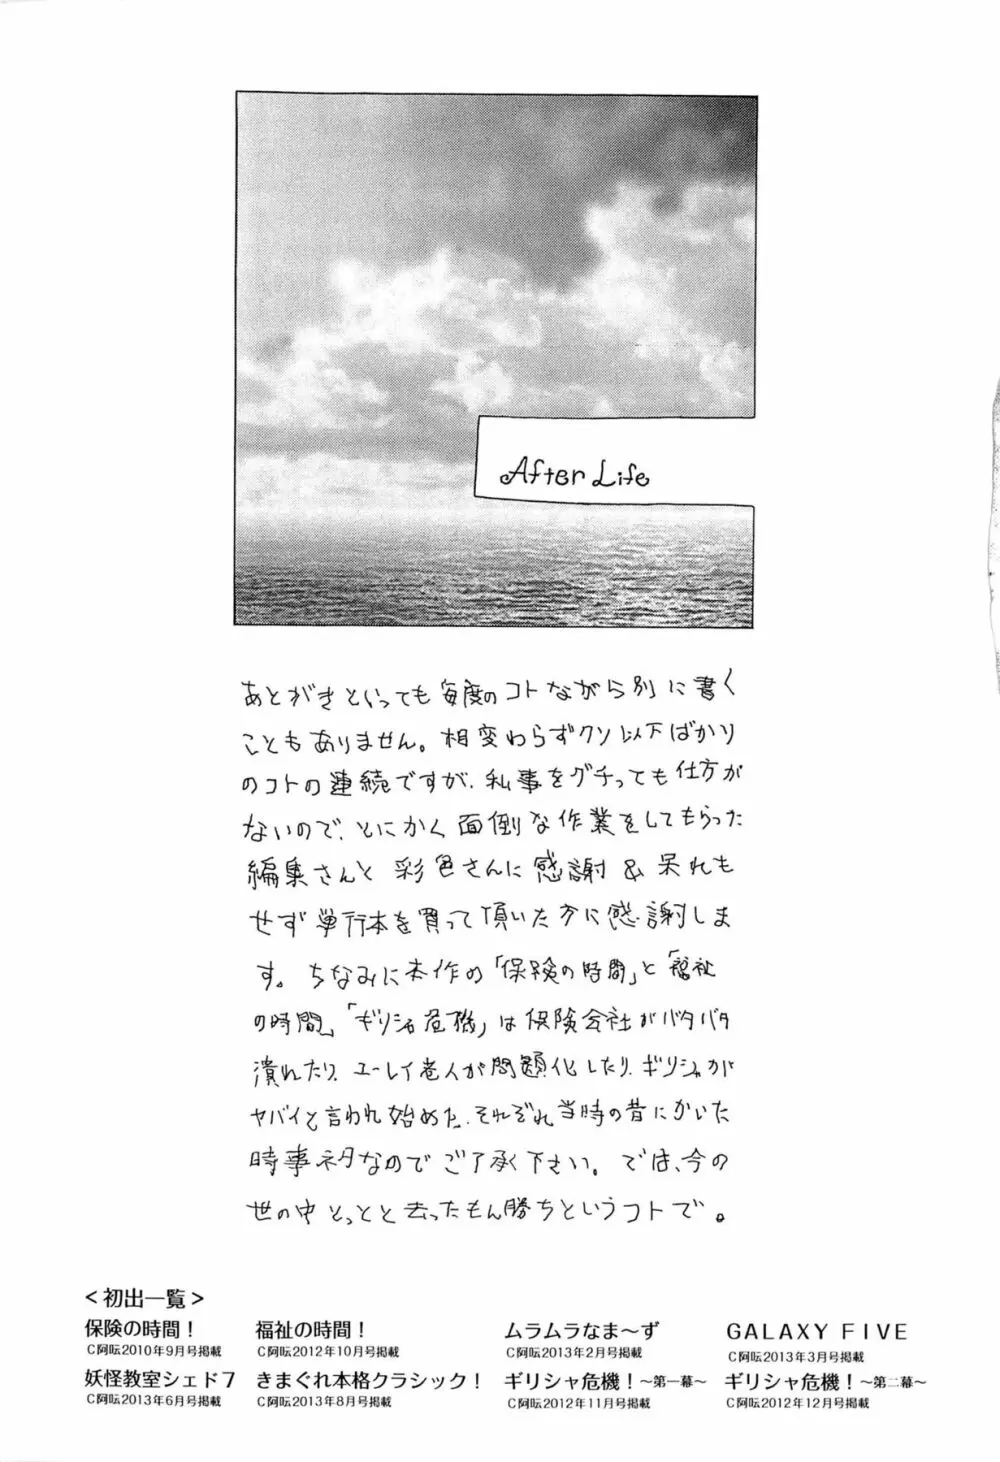 After Life
あとがきといっても毎度のコトながら別に書く
こともありません。相変わらずクソ以下ばかり
のコトの連続ですが、私事をグチっても仕方が
ないので、とにかく面倒な作業をしてもらった
編集さんと彩色さんに感謝&呆れも
せず単行本を買って頂いた方に感謝しま
す。ちなみに本作の「保険の時間」と「福祉
の時間」「ギリシャ危機」は保険会社がバタバタ
潰れたり、ユーレイ老人が問題化したり、ギリシャが
ヤバイと言われ始めた、それぞれ当時の昔にかいた
時事ネタなのでご了承下さい。では、今の
世の中とっとと去ったもん勝ちというコトで。
<初出一覧>
保険の時間!
C阿吽2010年9月号掲載
福祉の時間!
C阿吽2012年10月号掲載
ムラムラなま〜ず
C阿吽2013年2月号掲載
GALAXY FIVE
C阿吽2013年3月号掲載
妖怪教室シェド7
C阿吽2013年6月号掲載
きまぐれ本格クラシック!
C阿吽2013年8月号掲載
ギリシャ危機!〜第一幕〜
C阿吽2012年11月号掲載
ギリシャ危機!〜第二幕〜
C阿吽2012年12月号掲載